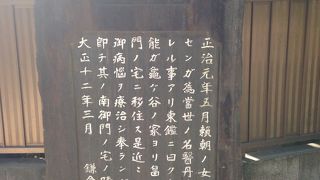 正治元年五月頼朝ノ女
センガ為當世ノ名醫丹
レル事アリ東鑑ニ曰ク
能ガ龜ケ谷ノ家ヨリ畠
門ノ宅ニ移住ス是近
御病惱ヲ療治シ奉ラン
即チ其ノ南御門ノ宅ノ
大正十二年三月 鎌